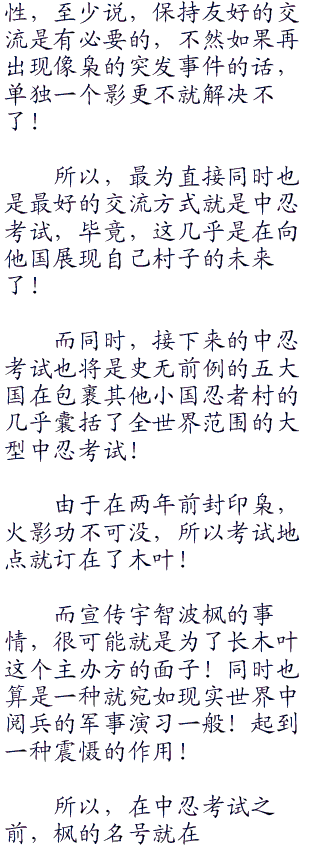 性，至少说，保持友好的交
流是有必要的，不然如果再
出现像枭的突发事件的话，
单独一个影更不就解决不
了！
所以，最为直接同时也
是最好的交流方式就是中忍
考试，毕竟，这几乎是在向
他国展现自己村子的未来
了！
而同时，接下来的中忍
考试也将是史无前例的五大
国在包裹其他小国忍者村的
几乎囊括了全世界范围的大
型中忍考试！
由于在两年前封印枭，
火影功不可没，所以考试地
点就订在了木叶！
而宣传宇智波枫的事
情，很可能就是为了长木叶
这个主办方的面子！同时也
算是一种就宛如现实世界中
阅兵的军事演习一般！起到
一种震慑的作用！
所以，在中忍考试之
前，枫的名号就在